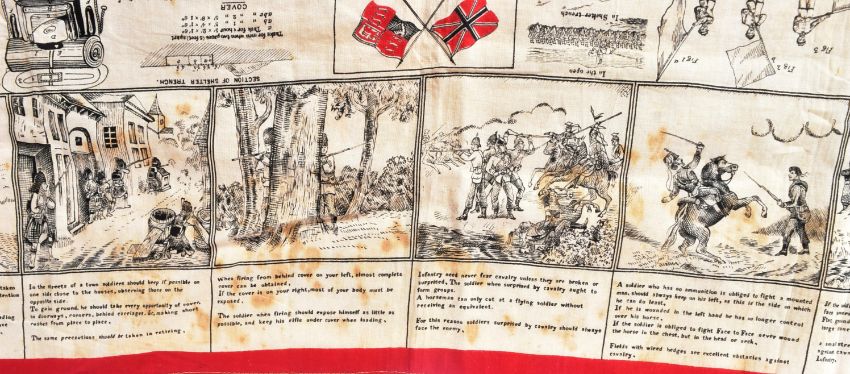 COVER
SECTION OF SHELTER TRENCH.
In Shelter-trench
In the open
Fig 1a
Fig 2
Fig 3
In the streets of a town soldiers should keep if possible on
one side close to the houses, observing there on the
opposite side.
To gain ground, he should take every opportunity of cover,
in doorways, corners, behind carriages, &c, making short
rushes from place to place.
The same precautions should be taken in retiring.
When firing from behind cover on your left, almost complete
cover can be obtained,
If the cover is on your right, most of your body must be
exposed.
The soldier when firing should expose himself as little as
possible, and keep his rifle under cover when loading.
Infantry need never fear cavalry unless they are broken or
surprised, The soldier when surprised by cavalry ought to
form groups.
A horseman can only cut at a flying soldier without
receiving an equivalent.
For this reason soldiers surprised by cavalry should always
face the enemy.
A soldier who has no ammunition is obliged to fight a mounted
man, should always keep on his left, as this is the side on which
he can do least,
If he is wounded in the left hand he has no longer control
over his horse.
If the soldier is obliged to fight Face to Face never wound
the horse in the chest, but in the head or neck.
Fields with wired hedges are excellent obstacles against
cavalry.